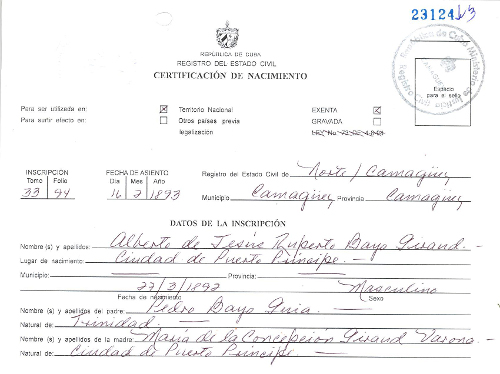 231243
REPUBLICA DE CUBA
REGISTRO DEL ESTADO CIVIL
CERTIFICACIÓN DE NACIMIENTO
República de Cuba Ministerio de Justicia
Registro Civil
Espacio para el sello
Para ser utilizada en: ☒ Territorio Nacional EXENTA ☒
Para surtir efecto en: ☐ Otros países previa legalización GRAVADA ☐
INSCRIPCION FECHA DE ASIENTO Registro del Estado Civil de Norte / Camagüey
Tomo Folio Día Mes Año
33 94 16 2 1893 Municipio Camagüey Provincia Camagüey
DATOS DE LA INSCRIPCIÓN
Nombre(s) y apellidos: Alberto de Jesús Ruperto Bayo Giraud.-
Lugar de nacimiento: Ciudad de Puerto Príncipe.-
Municipio: Provincia:
27/3/1892 Masculino
Fecha de nacimiento Sexo
Nombre(s) y apellidos del padre: Pedro Bayo Guia
Natural de: Trinidad.
Nombre(s) y apellidos de la madre: María de la Concepción Giraud Varona.-
Natural de: Ciudad de Puerto Príncipe.